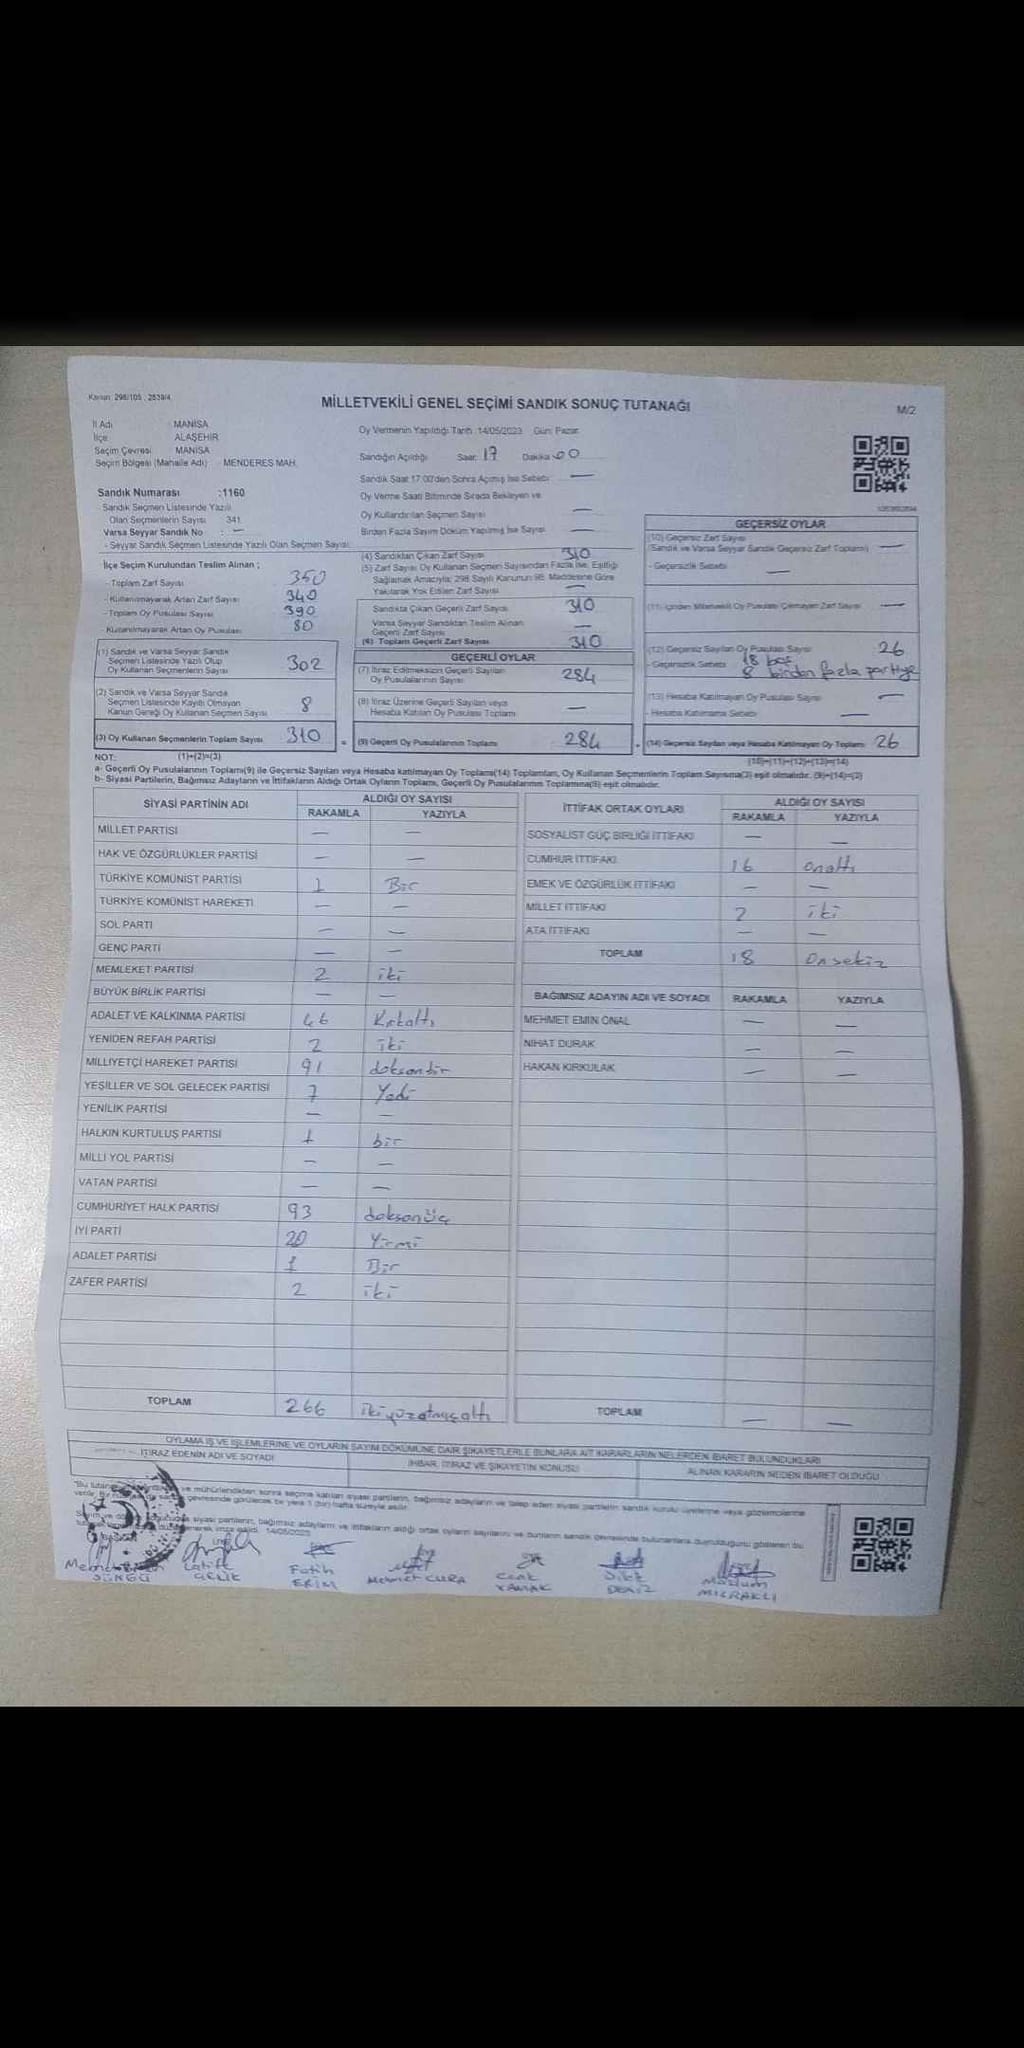 Kanun: 298/105 ; 2839/4
MİLLETVEKİLİ GENEL SEÇİMİ SANDIK SONUÇ TUTANAĞI
M/2
İl Adı : MANİSA
İlçe : ALAŞEHİR
Seçim Çevresi : MANİSA
Seçim Bölgesi (Mahalle Adı) : MENDERES MAH.
Oy Vermenin Yapıldığı Tarih :14/05/2023 Gün: Pazar
Sandığın Açıldığı Saat: 17 Dakika: 00
Sandık Saat 17.00'den Sonra Açılmış İse Sebebi: —
Oy Verme Saati Bitiminde Sırada Bekleyen ve
Oy Kullandırılan Seçmen Sayısı —
Birden Fazla Sayım Döküm Yapılmış İse Sayısı —
Sandık Numarası :1160
Sandık Seçmen Listesinde Yazılı
Olan Seçmenlerin Sayısı 341
Varsa Seyyar Sandık No : —
- Seyyar Sandık Seçmen Listesinde Yazılı Olan Seçmen Sayısı:
İlçe Seçim Kurulundan Teslim Alınan ;
- Toplam Zarf Sayısı 350
- Kullanılmayarak Artan Zarf Sayısı 340
- Toplam Oy Pusulası Sayısı 390
- Kullanılmayarak Artan Oy Pusulası 80
(1) Sandık ve Varsa Seyyar Sandık
Seçmen Listesinde Yazılı Olup
Oy Kullanan Seçmenlerin Sayısı 302
(2) Sandık ve Varsa Seyyar Sandık
Seçmen Listesinde Kayıtlı Olmayan
Kanun Gereği Oy Kullanan Seçmen Sayısı 8
(3) Oy Kullanan Seçmenlerin Toplam Sayısı 310
(4) Sandıktan Çıkan Zarf Sayısı 310
(5) Zarf Sayısı Oy Kullanan Seçmen Sayısından Fazla İse, Eşitliği
Sağlamak Amacıyla; 298 Sayılı Kanunun 98. Maddesine Göre
Yakılarak Yok Edilen Zarf Sayısı —
Sandıkta Çıkan Geçerli Zarf Sayısı 310
Varsa Seyyar Sandıktan Teslim Alınan
Geçerli Zarf Sayısı —
(6) Toplam Geçerli Zarf Sayısı 310
GEÇERLİ OYLAR
(7) İtiraz Edilmeksizin Geçerli Sayılan
Oy Pusulalarının Sayısı 284
(8) İtiraz Üzerine Geçerli Sayılan veya
Hesaba Katılan Oy Pusulası Toplamı —
= (9) Geçerli Oy Pusulalarının Toplamı 284
GEÇERSİZ OYLAR
(10) Geçersiz Zarf Sayısı
(Sandık ve Varsa Seyyar Sandık Geçersiz Zarf Toplamı) —
- Geçersizlik Sebebi —
(11) İçinden Milletvekili Oy Pusulası Çıkmayan Zarf Sayısı —
(12) Geçersiz Sayılan Oy Pusulası Sayısı 26
- Geçersizlik Sebebi 18 boş
8 birden fazla partiye
(13) Hesaba Katılmayan Oy Pusulası Sayısı —
- Hesaba Katılmama Sebebi —
+ (14) Geçersiz Sayılan veya Hesaba Katılmayan Oy Toplamı 26
NOT: (1)+(2)=(3)
(10)+(11)+(12)+(13)=(14)
a- Geçerli Oy Pusulalarının Toplamı(9) ile Geçersiz Sayılan veya Hesaba katılmayan Oy Toplamı(14) Toplamları, Oy Kullanan Seçmenlerin Toplam Sayısına(3) eşit olmalıdır. (9)+(14)=(3)
b- Siyasi Partilerin, Bağımsız Adayların ve İttifakların Aldığı Ortak Oyların Toplamı, Geçerli Oy Pusulalarının Toplamına(9) eşit olmalıdır.
SİYASİ PARTİNİN ADI ALDIĞI OY SAYISI
RAKAMLA YAZIYLA
MİLLET PARTİSİ — —
HAK VE ÖZGÜRLÜKLER PARTİSİ — —
TÜRKİYE KOMÜNİST PARTİSİ 1 Bir
TÜRKİYE KOMÜNİST HAREKETİ
SOL PARTİ — —
GENÇ PARTİ — —
MEMLEKET PARTİSİ 2 iki
BÜYÜK BİRLİK PARTİSİ — —
ADALET VE KALKINMA PARTİSİ 46 Kırkaltı
YENİDEN REFAH PARTİSİ 2 iki
MİLLİYETÇİ HAREKET PARTİSİ 91 doksanbir
YEŞİLLER VE SOL GELECEK PARTİSİ 7 Yedi
YENİLİK PARTİSİ — —
HALKIN KURTULUŞ PARTİSİ 1 bir
MİLLİ YOL PARTİSİ — —
VATAN PARTİSİ — —
CUMHURİYET HALK PARTİSİ 93 doksanüç
İYİ PARTİ 20 Yirmi
ADALET PARTİSİ 1 Bir
ZAFER PARTİSİ 2 iki
TOPLAM 266 ikiyüzatmışaltı
İTTİFAK ORTAK OYLARI ALDIĞI OY SAYISI
RAKAMLA YAZIYLA
SOSYALİST GÜÇ BİRLİĞİ İTTİFAKI — —
CUMHUR İTTİFAKI 16 onaltı
EMEK VE ÖZGÜRLÜK İTTİFAKI — —
MİLLET İTTİFAKI 2 iki
ATA İTTİFAKI — —
TOPLAM 18 onsekiz
BAĞIMSIZ ADAYIN ADI VE SOYADI RAKAMLA YAZIYLA
MEHMET EMİN ÖNAL — —
NİHAT DURAK — —
HAKAN KIRKULAK — —
TOPLAM — —
OYLAMA İŞ VE İŞLEMLERİNE VE OYLARIN SAYIM DÖKÜMÜNE DAİR ŞİKAYETLERLE BUNLARA AİT KARARLARIN NELERDEN İBARET BULUNDUKLARI
İTİRAZ EDENİN ADI VE SOYADI İHBAR, İTİRAZ VE ŞİKAYETİN KONUSU ALINAN KARARIN NEDEN İBARET OLDUĞU
ve mühürlendikten sonra seçime katılan siyasi partilerin, bağımsız adayların ve talep eden siyasi partilerin sandık kurulu üyelerine veya gözlemcilerine
çevresinde görülecek bir yere 1 (bir) hafta süreyle asılır.
siyasi partilerin, bağımsız adayların ve ittifakların aldığı ortak oyların sayılarını ve bunların sandık çevresinde bulunanlara duyurulduğunu gösteren bu
imza edildi. 14/05/2023
Latife Fatih Mehmet CURA Cenk Mazlum
ÇELİK ERİM YAMAK DENİZ MIZRAKLI